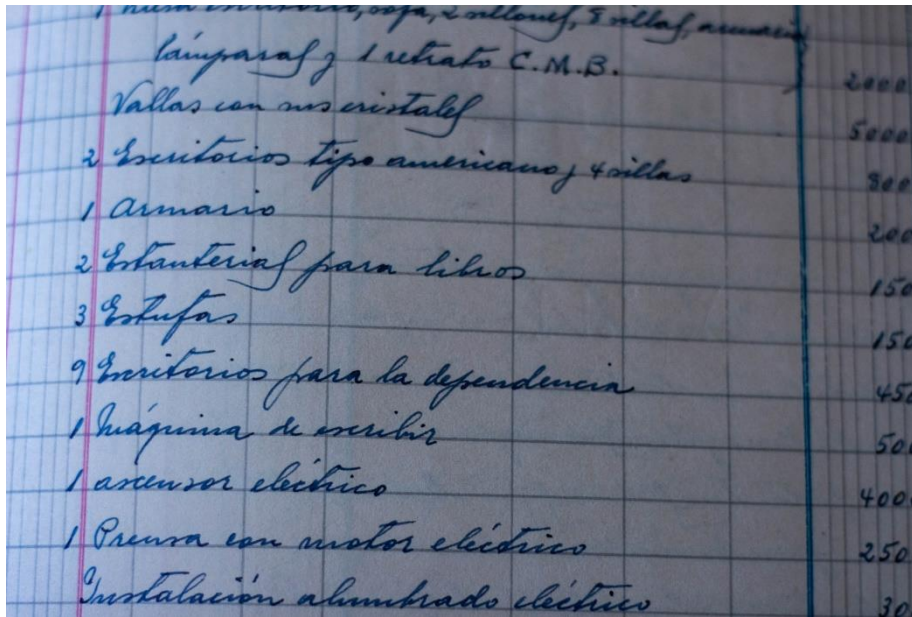 1 mesa escritorio, sofa, 2 sillones, 8 sillas, armario
lámparas y 1 retrato C.M.B. 2000
Vallas con sus cristales 5000
2 Escritorios tipo americano y 4 sillas 800
1 Armario 200
2 Estanterias para libros 150
3 Estufas 150
9 Escritorios para la dependencia 450
1 Máquina de escribir 500
1 ascensor eléctrico 400
1 Prensa con motor eléctrico 250
Instalación alumbrado eléctrico 30